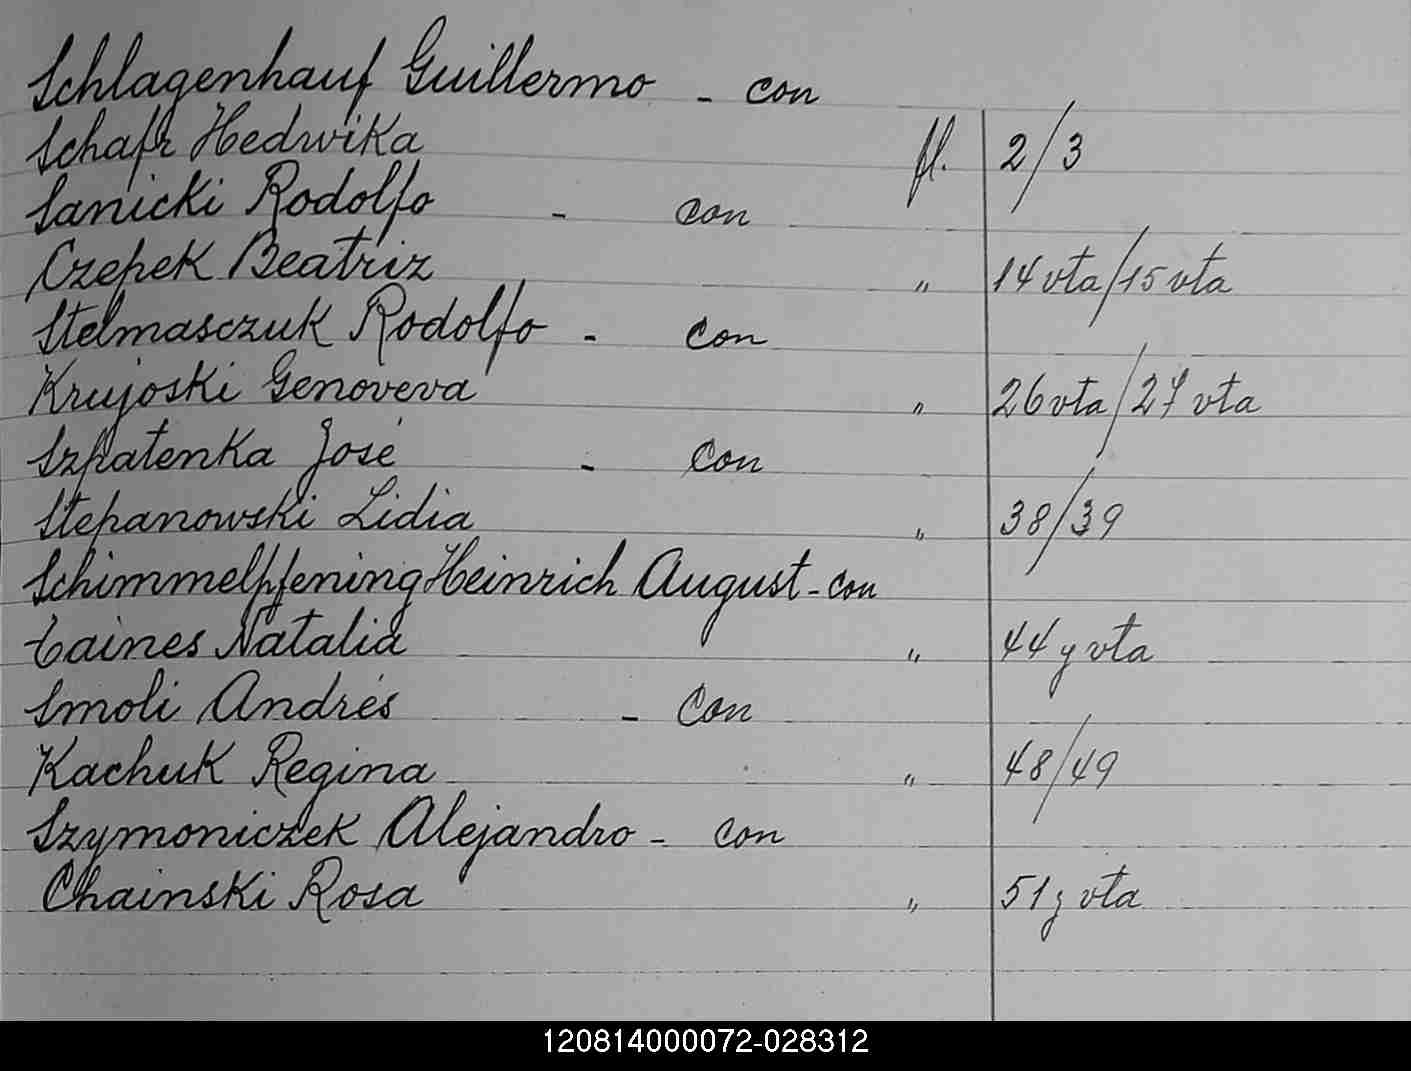 Schlagenhauf Guillermo - con
Schafr Hedwika fl. 2/3
Sanicki Rodolfo - con
Czepek Beatriz " 14 vta/15 vta
Stelmasczuk Rodolfo - con
Krujoski Genoveva " 26 vta/27 vta
Szpatenka José - con
Stepanowski Lidia " 38/39
Schimmelpfening Heinrich August - con
Laines Natalia " 44 y vta
Smoli Andrés - con
Kachuk Regina " 48/49
Szymoniczek Alejandro - con
Chainski Rosa " 51 y vta
120814000072-028312